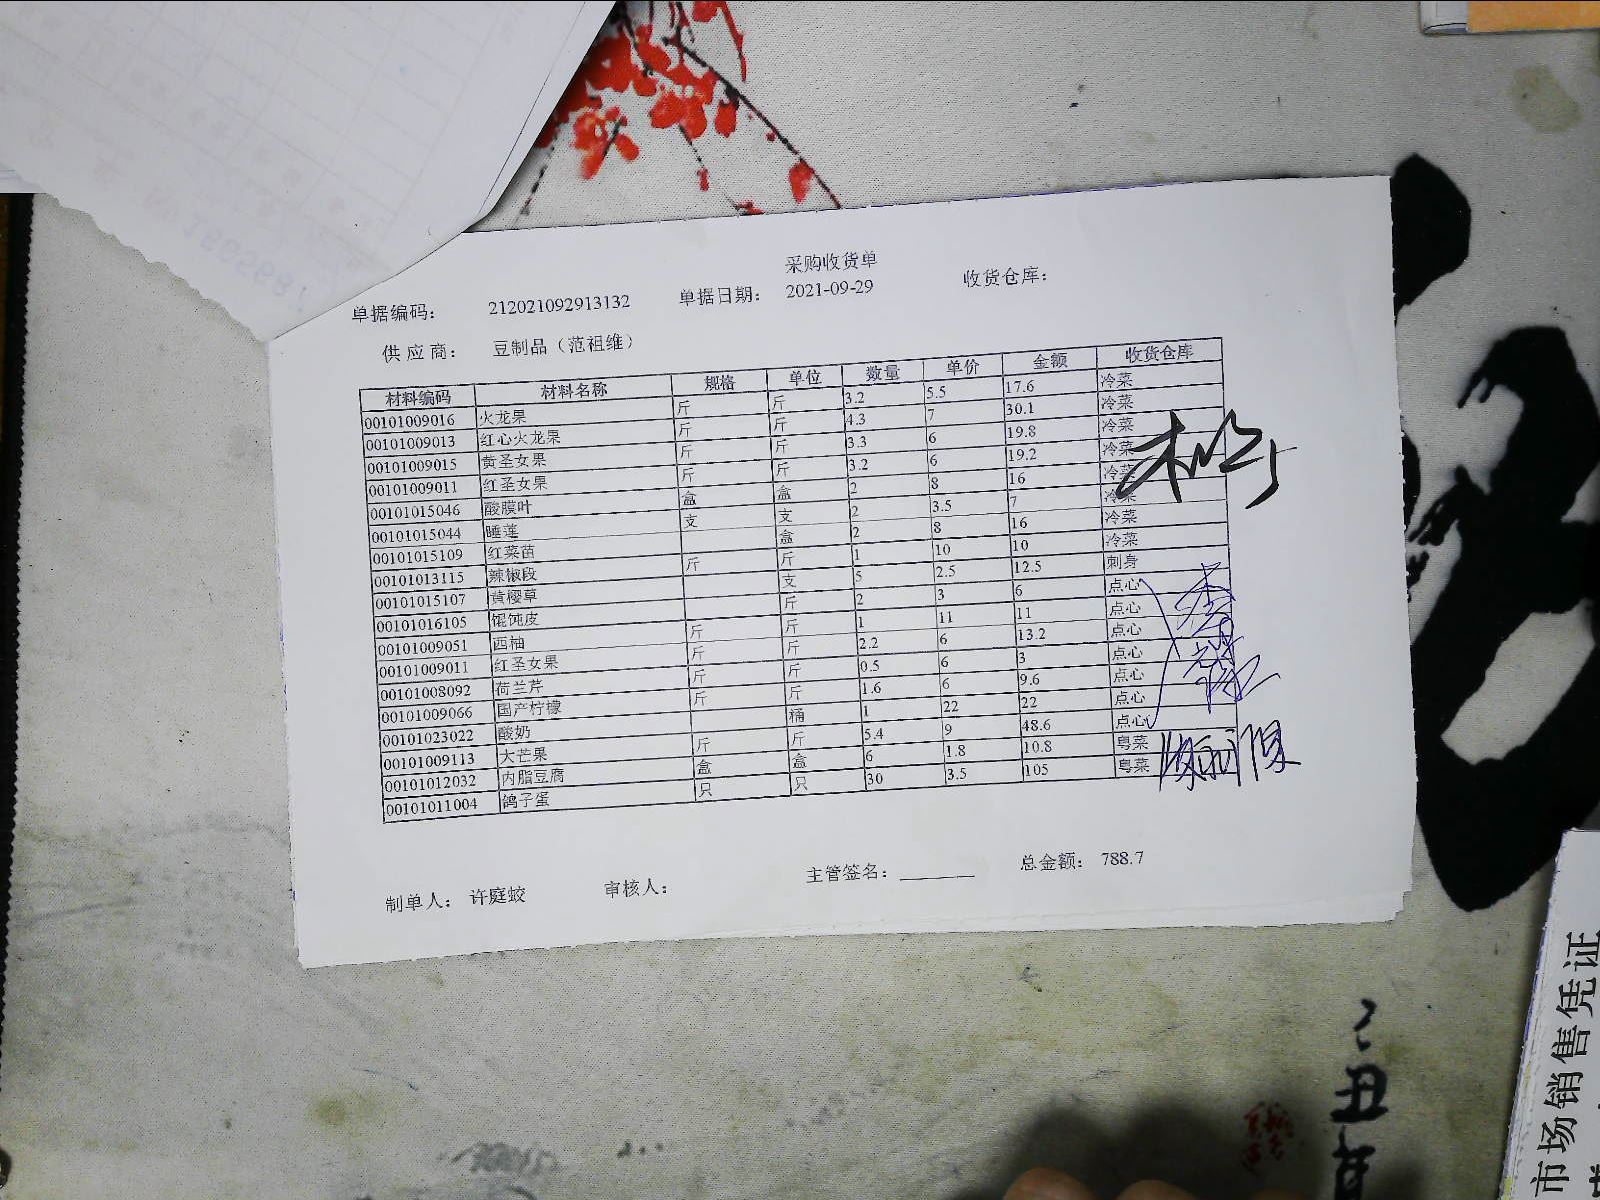 采购收货单
单据编码： 212021092913132 单据日期： 2021-09-29 收货仓库：
供 应 商： 豆制品（范祖维）
材料编码 材料名称 规格 单位 数量 单价 金额 收货仓库
00101009016 火龙果 斤 斤 3.2 5.5 17.6 冷菜
00101009013 红心火龙果 斤 斤 4.3 7 30.1 冷菜
00101009015 黄圣女果 斤 斤 3.3 6 19.8 冷菜
00101009011 红圣女果 斤 斤 3.2 6 19.2 冷菜
00101015046 酸膜叶 盒 盒 2 8 16 冷菜
00101015044 睡莲 支 支 2 3.5 7 冷菜
00101015109 红菜苗 盒 2 8 16 冷菜
00101013115 辣椒段 斤 斤 1 10 10 冷菜
00101015107 黄樱草 支 5 2.5 12.5 刺身
00101016105 馄饨皮 斤 2 3 6 点心
00101009051 西柚 斤 斤 1 11 11 点心
00101009011 红圣女果 斤 斤 2.2 6 13.2 点心
00101008092 荷兰芹 斤 斤 0.5 6 3 点心
00101009066 国产柠檬 斤 斤 1.6 6 9.6 点心
00101023022 酸奶 桶 1 22 22 点心
00101009113 大芒果 斤 斤 5.4 9 48.6 点心
00101012032 内脂豆腐 盒 盒 6 1.8 10.8 粤菜
00101011004 鸽子蛋 只 只 30 3.5 105 粤菜
制单人： 许庭蛟 审核人： 主管签名： 总金额： 788.7
市场销售凭证